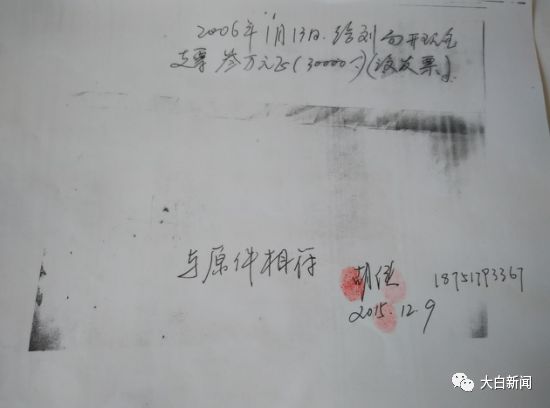 2006年1月13日.给刘 向开现金
支票 叁万元正(30000元)(没发票).
与原件相符
胡俊 18751793367
2015.12.9
大白新闻